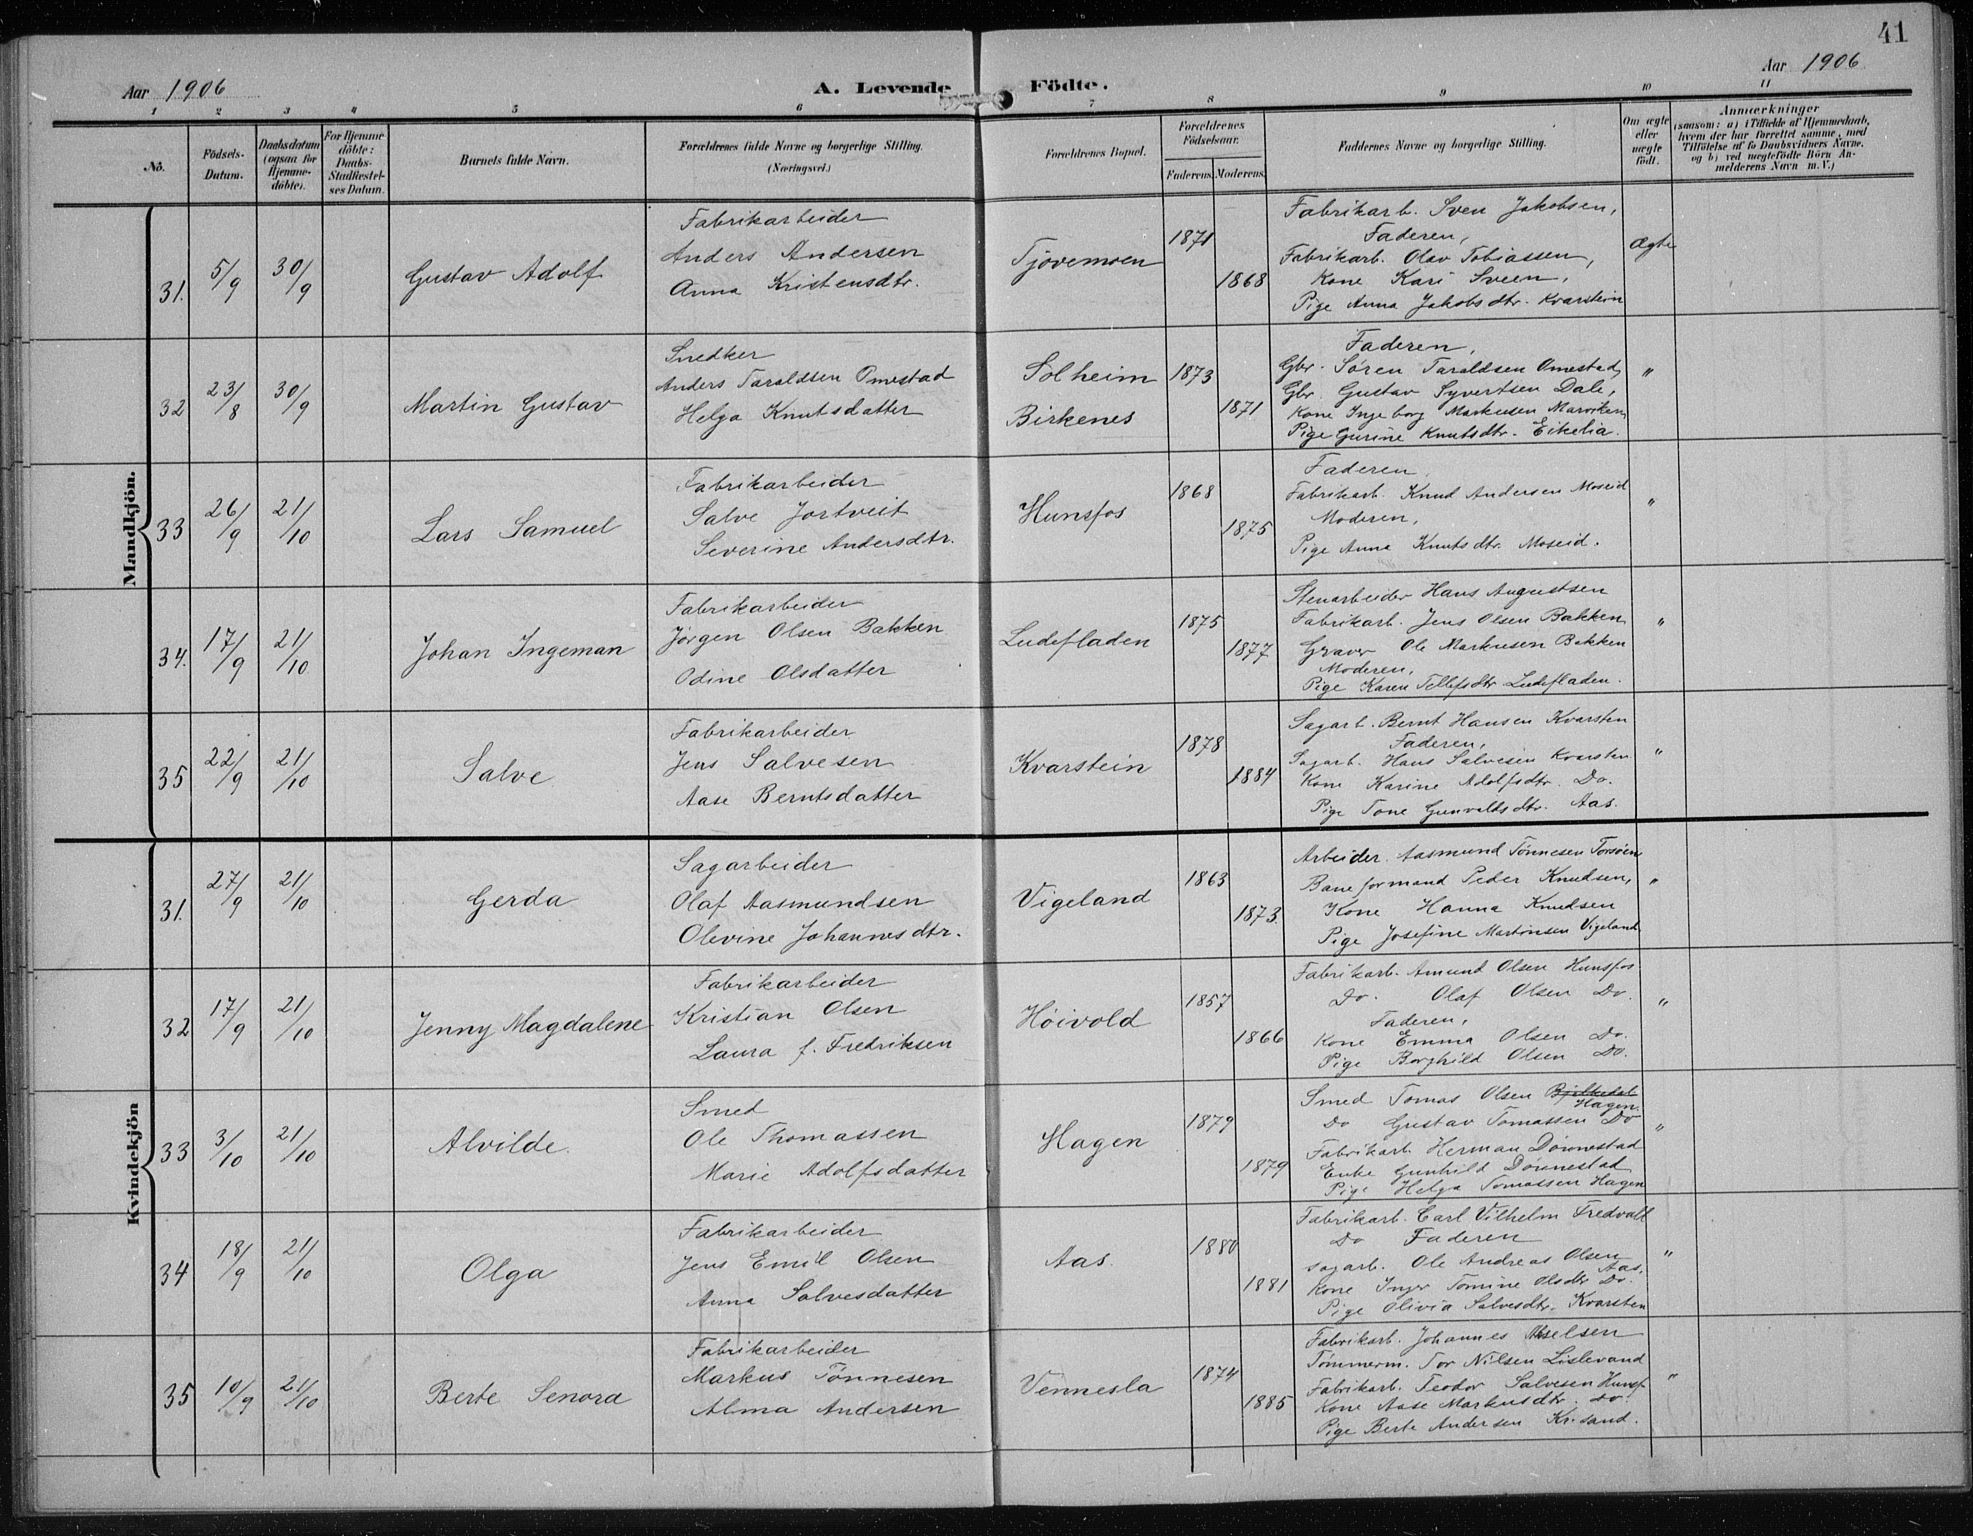 41
Aar 1906
A. Levende Födte.
Aar 1906
1 2 3 4 5 6 7 8 9 10 11
No.
Födsels-Datum.
Daabsdatum (ogsaa for Hjemme-döbte).
For Hjemme döbte: Daabs-Stadfæstel-ses Datum.
Barnets fulde Navn.
Forældrenes fulde Navne og borgerlige Stilling.
(Næringsvei.)
Forældrenes Bopæl.
Forældrenes Födselsaar.
Faderens. Moderens.
Faddernes Navne og borgerlige Stilling.
Om ægte eller uægte födt.
Anmærkninger
(saasom: a) i Tilfælde af Hjemmedaab,
hvem der har forrettet samme, med
Tilföielse af to Daabsvidners Navne.
og b) ved uægtefödte Börn An-
melderens Navn m. V.)
Mandkjön.
31. 5/9 30/9 Gustav Adolf
Fabrikarbeider
Anders Andersen
Anna Kristensdtr.
Tjovemoen
1871
1868
Fabrikarb. Sven Jakobsen,
Faderen,
Fabrikarb. Olav Tobiassen,
Kone Kari Sveen,
Pige Anna Jakobsdtr. Kvarstein
Ægte
32 23/8 30/9 Martin Gustav
Snedker
Anders Taraldsen Omestad
Helga Knutsdatter
Solheim
Birkenes
1873
1871
Faderen,
Gbr. Søren Taraldsen Omestad,
Gbr. Gustav Syvertsen Dale,
Kone Ingeborg Markusen
Pige Gurine Knutsdtr. Eikelia.
"
33 26/9 21/10 Lars Samuel
Fabrikarbeider
Salve Jortveit
Severine Andersdtr.
Hunsfos
1868
1875
Faderen,
Fabrikarb. Knud Andersen Moseid
Moderen,
Pige Anna Knutsdtr. Moseid.
"
34. 17/9 21/10 Johan Ingeman
Fabrikarbeider
Jørgen Olsen Bakken
Odine Olsdatter
Ludefladen
1875
1877
Stenarbeider Hans Augustsen
Fabrikarb. Jens Olsen Bakken
Graver Ole Markusen Bakken
Moderen,
Pige Karen Tellefsdtr. Ludefladen.
"
35 22/9 21/10 Salve
Fabrikarbeider
Jens Salvesen
Aase Berntsdatter
Kvarstein
1878
1884
Sagarb. Bernt Hansen Kvarsten
Faderen,
Sagarb. Hans Salvesen Kvarsten
Kone Karine Adolfsdtr. Do.
Pige Tone Gunvaldsdtr. Aas.
"
Kvindekjön
31. 27/9 21/10 Gerda
Sagarbeider
Olaf Aasmundsen
Olevine Johannesdtr.
Vigeland
1863
1873.
Arbeider Aasmund Tønnesen
Baneformand Peder Knudsen,
Kone Hanna Knudsen
Pige Josefine Martinsen Vigeland
"
32 17/9 21/10 Jenny Magdalene
Fabrikarbeider
Kristian Olsen
Laura f. Fredriksen
Høivold
1857
1866
Fabrikarb. Amund Olsen Hunsfos
Do. Olaf Olsen Do.
Faderen,
Kone Emma Olsen Do.
Pige Borghild Olsen Do.
"
33 3/10 21/10 Alvilde.
Smed
Ole Thomassen
Marie Adolfsdatter
Hagen
1879
1879
Smed Tomas Olsen
Hagen.
Do Gustav Tomassen Do
Fabrikarb. Herman Dønnestad
Enke Gunhild Dønnestad
Pige Helga Tomassen Hagen
"
34 18/9 21/10 Olga
Fabrikarbeider
Jens Emil Olsen
Anna Salvesdatter
Aas.
1880
1881
Fabrikarb. Carl Vilhelm Fredvall
Do Faderen
Sagarb. Ole Andreas Olsen Aas.
Kone Inger Tomine Olsdtr Do.
Pige Olivia Salvesdtr. Kvarsten
"
35 10/9 21/10 Berte Senora
Fabrikarbeider
Markus Tønnesen
Alma Andersen
Vennesla
1874
1885
Fabrikarb. Johannes Akselsen
Tømmerm. Tor Nilsen Lislevand
Fabrikarb. Teodor Salvesen Hunsf.
Kone Aase Markusdtr. Do.
Pige Berte Andersen Kr.sand.
"